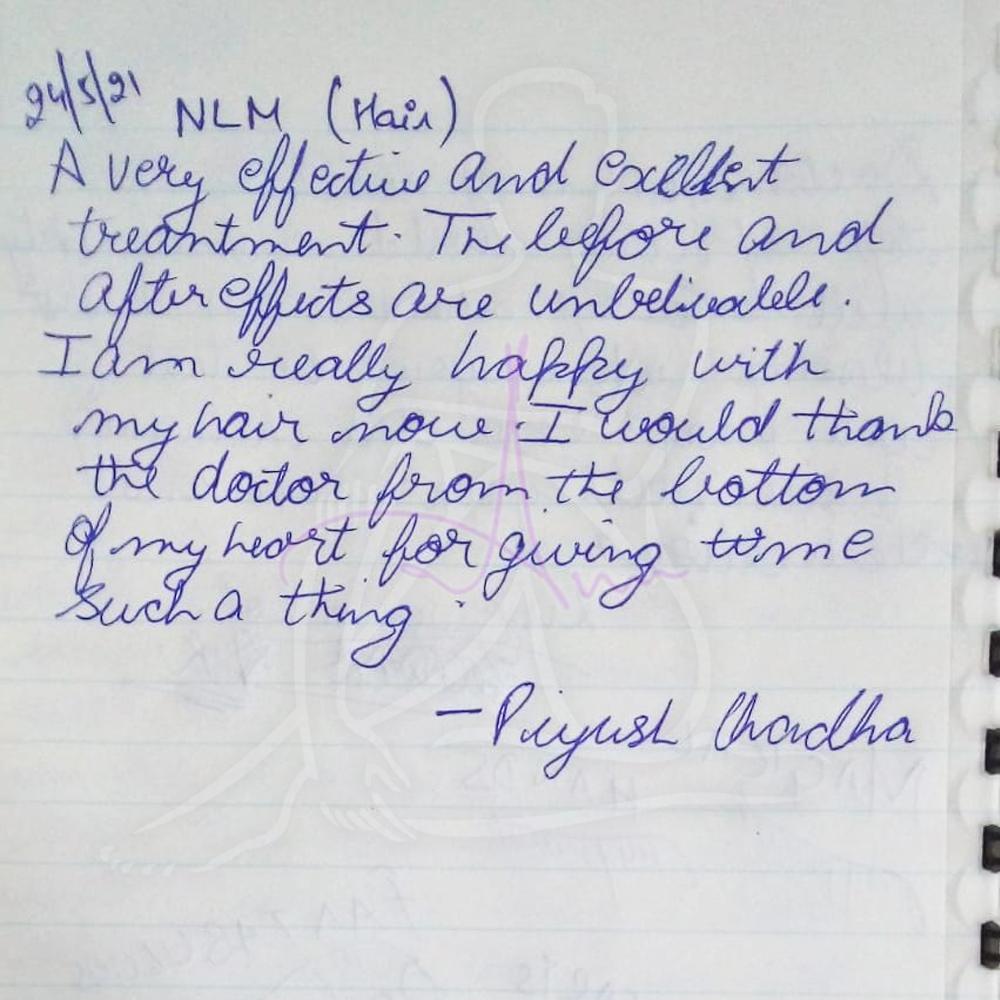 24/5/21 NLM (Hair)
A very effective and excellent
treantment. The before and
after effects are unbelivable.
I am really happy with
my hair now. I would thank
the doctor from the bottom
of my heart for giving to me
such a thing.
- Piyush Chadha